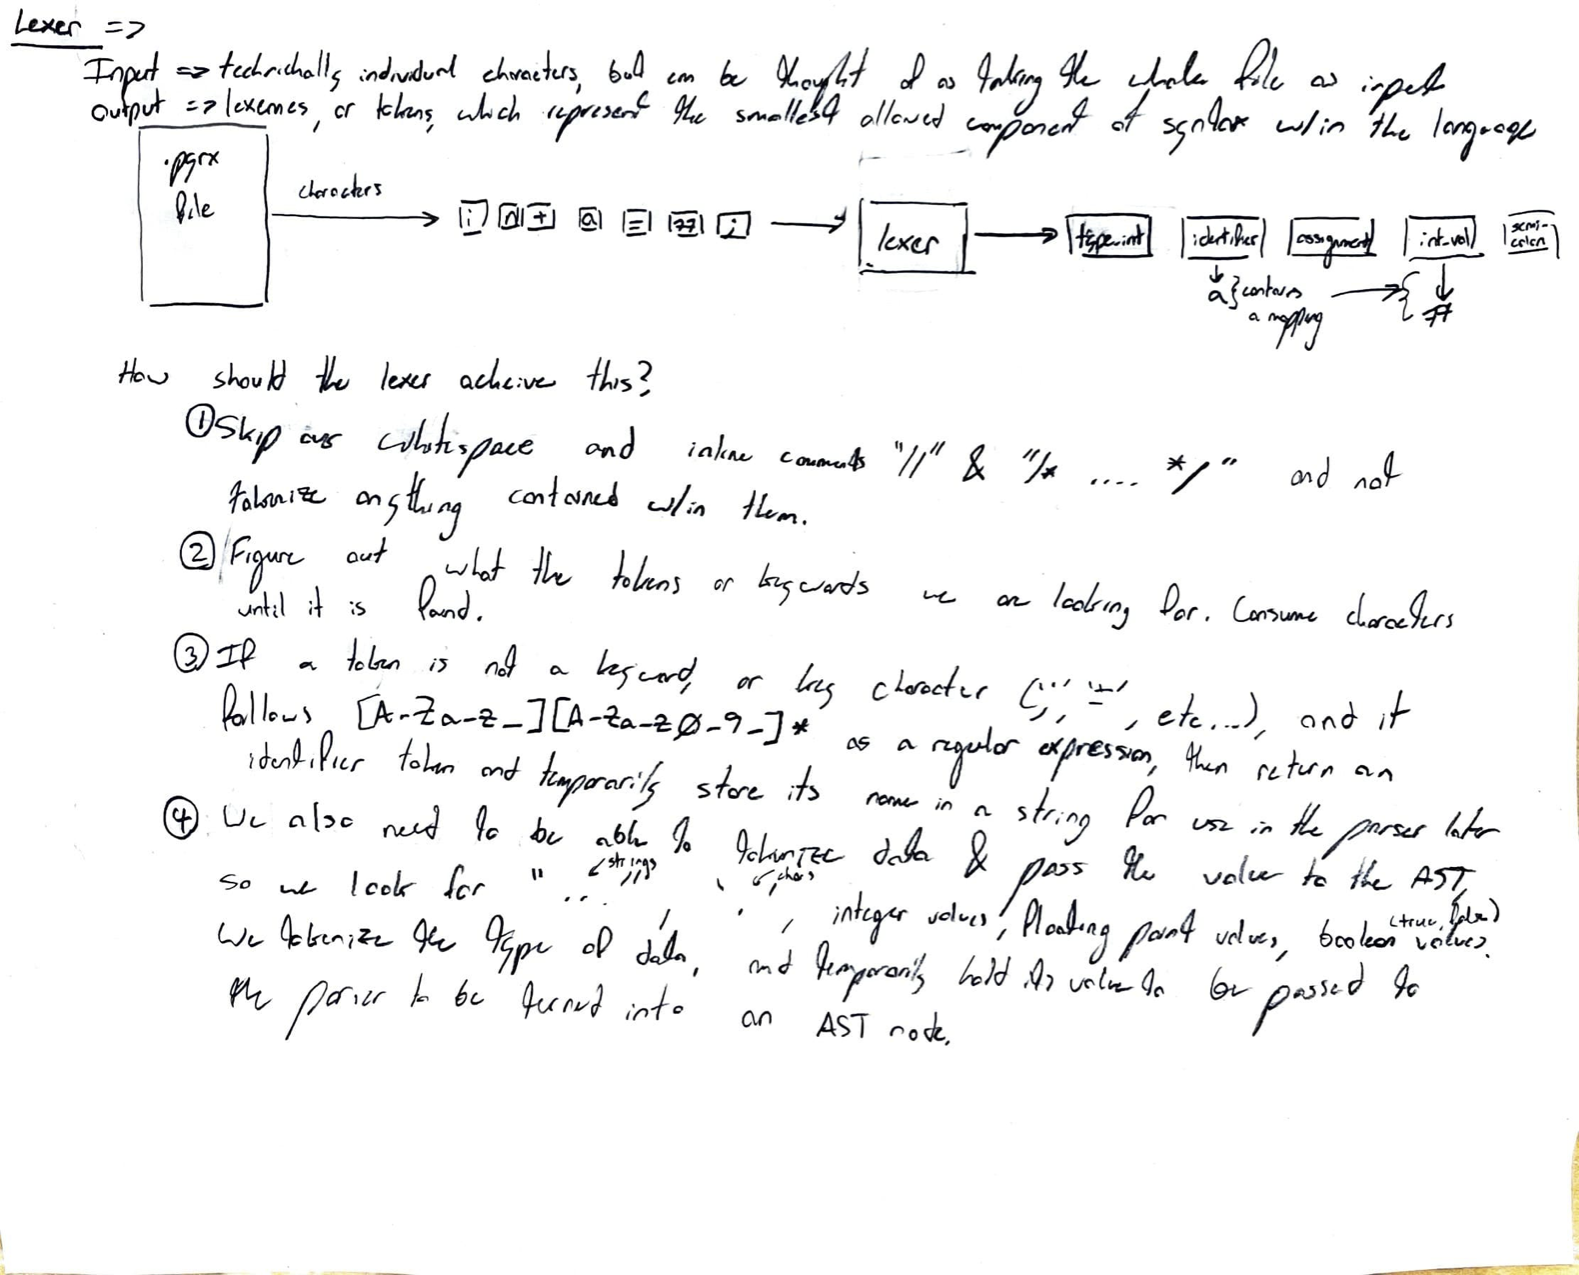 Lexer =>
Input => technichally individual characters, but can be thought of as taking the whole file as input
Output => lexemes, or tokens, which represent the smallest allowed component of syntax w/in the language
.pgrx
file
characters
i n t a = 77 ;
lexer
type_int identifier assignment int_val semi-
colon
a } contains
a mapping
{ 77
How should the lexer acheive this?
① Skip over whitespace and inline comments "//" & "/* .... */" and not
tokenize anything contained w/in them.
② Figure out what the tokens or keywords we are looking for. Consume characters
until it is found.
③ If a token is not a keyword, or key character (';', '=', etc...), and it
follows [A-Za-z_][A-Za-z0-9_]* as a regular expression, then return an
identifier token and temporarily store its name in a string for use in the parser later
④ We also need to be able to tokenize data & pass the value to the AST,
so we look for "...", ' ', integer values, floating point values, boolean values.
strings
chars
(true, false)
We tokenize the type of data, and temporarily hold its value to be passed to
the parser to be turned into an AST node.